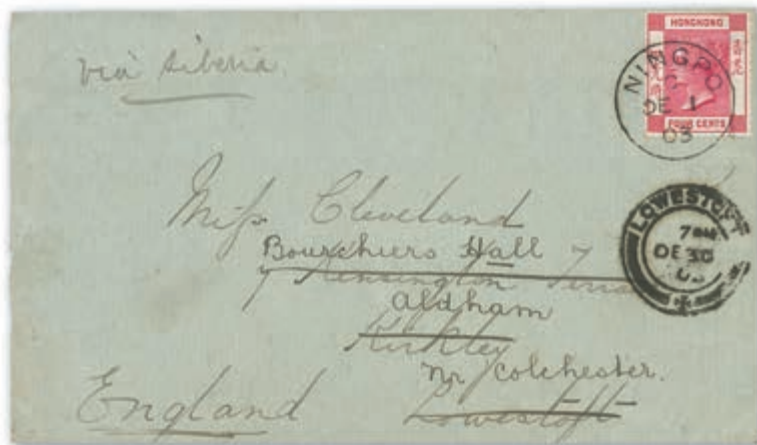 via Siberia
HONGKONG
FOUR CENTS
NINGPO
DE 1
03
LOWESTOFT
DE 30
03
Miss Cleveland
Bourchiers Hall
7 Kensington
Aldham
Kirkley
nr Colchester.
Lowestoft
England